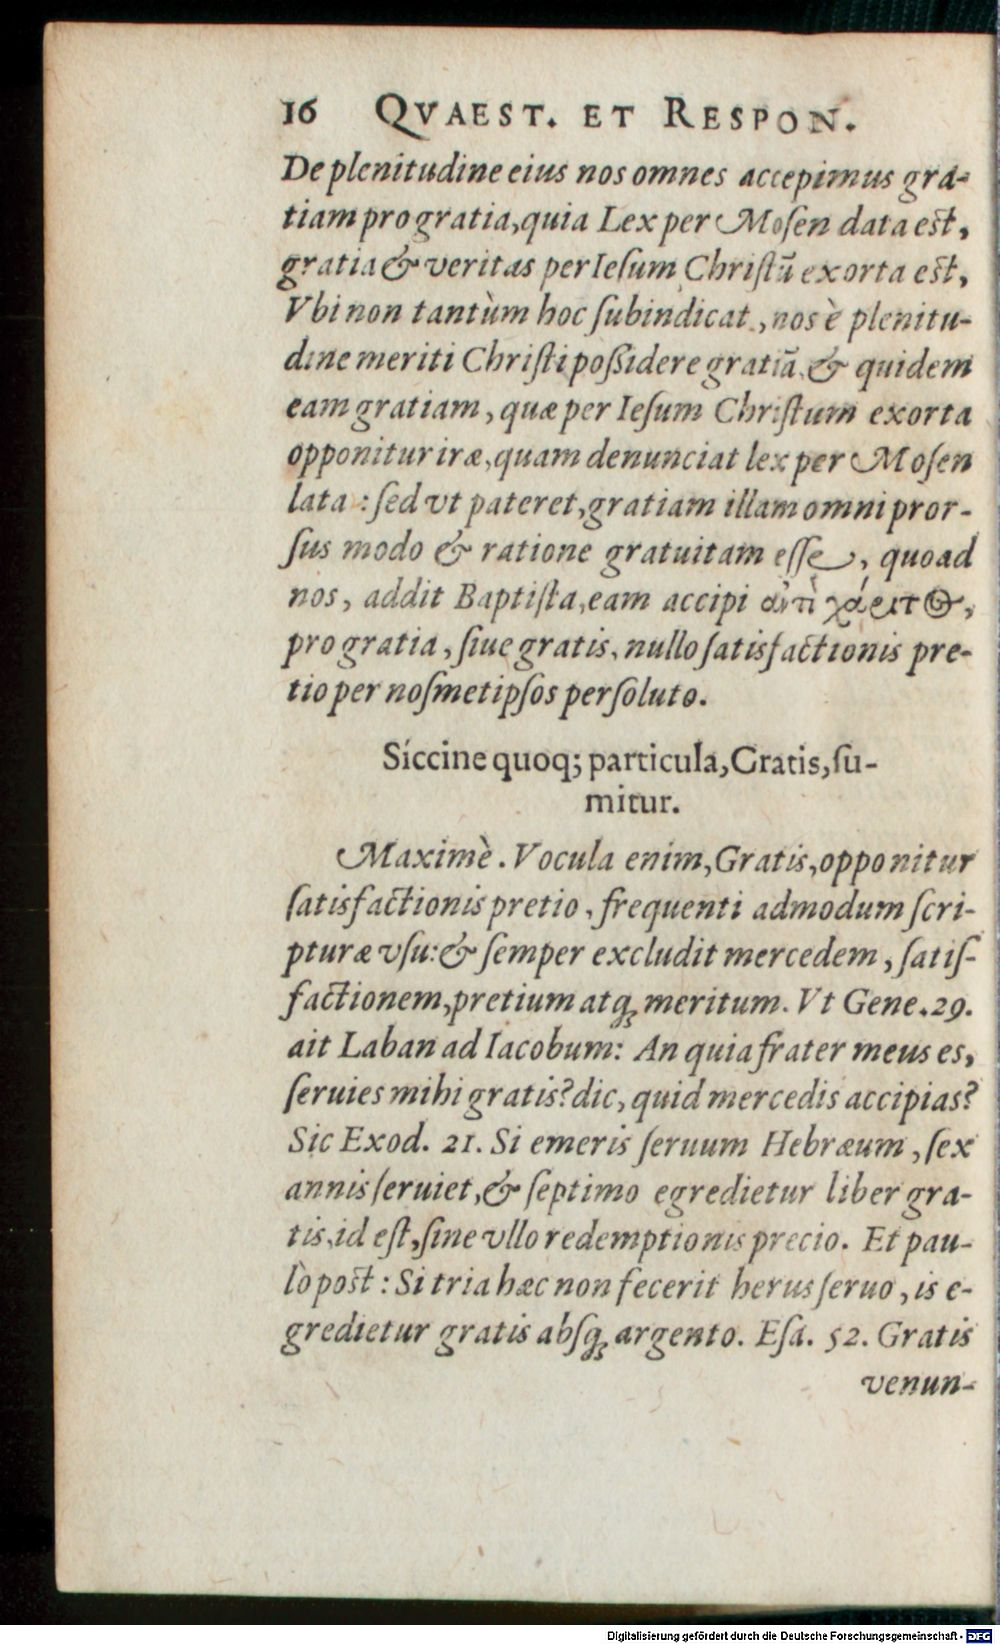 16 QVAEST. ET RESPON.
De plenitudine eius nos omnes accepimus gra-
tiam pro gratia, quia Lex per Mosen data est,
gratia & veritas per Iesum Christū exorta est,
Vbi non tantùm hoc subindicat, nos è plenitu-
dine meriti Christi possidere gratiā, & quidem
eam gratiam, quæ per Iesum Christum exorta
opponitur iræ, quam denunciat lex per Mosen
lata: sed vt pateret, gratiam illam omni pror-
sus modo & ratione gratuitam esse, quoad
nos, addit Baptista, eam accipi ἀντὶ χάριτος,
pro gratia, siue gratis, nullo satisfactionis pre-
tio per nosmetipsos persoluto.
Siccine quoq; particula, Gratis, su-
mitur.
Maximè. Vocula enim, Gratis, opponitur
satisfactionis pretio, frequenti admodum scri-
pturæ vsu: & semper excludit mercedem, satis-
factionem, pretium atq; meritum. Vt Gene. 29.
ait Laban ad Iacobum: An quia frater meus es,
seruies mihi gratis? dic, quid mercedis accipias?
Sic Exod. 21. Si emeris seruum Hebræum, sex
annis seruiet, & septimo egredietur liber gra-
tis, id est, sine vllo redemptionis precio. Et pau-
lò post: Si tria hæc non fecerit herus seruo, is e-
gredietur gratis absq; argento. Esa. 52. Gratis
venun-
Digitalisierung gefördert durch die Deutsche Forschungsgemeinschaft - DFG